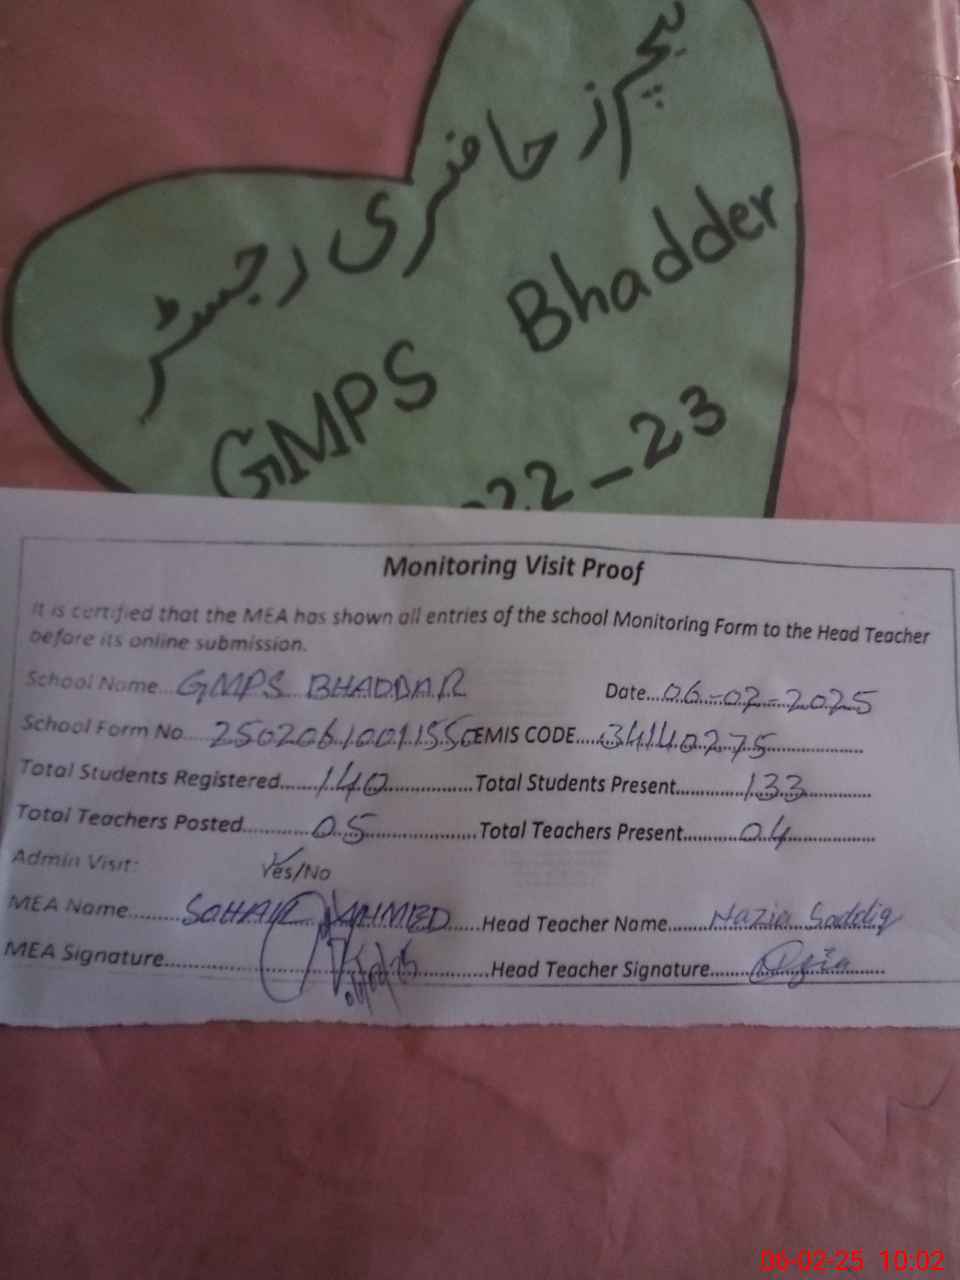 ٹیچرز حاضری رجسٹر
GMPS Bhadder
2022-23
Monitoring Visit Proof
It is certified that the MEA has shown all entries of the school Monitoring Form to the Head Teacher
before its online submission.
School Name...GMPS BHADDAR Date...06-02-2025
School Form No. 2502061001155 EMIS CODE....34140275
Total Students Registered......140 Total Students Present......133
Total Teachers Posted......05 Total Teachers Present......04
Admin Visit: Yes/No
MEA Name......SOHAIL AHMED Head Teacher Name......Nazia Saddiq
MEA Signature...... Head Teacher Signature......
06-02-25 10:02